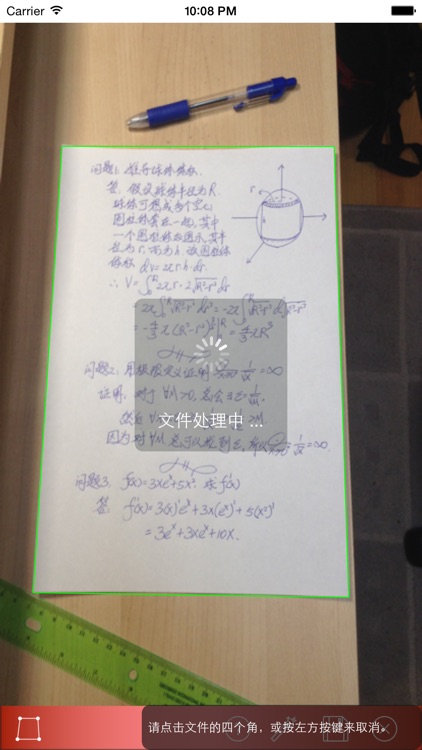 Carrier
10:08 PM
问题1: 推导球体体积.
答: 假设球体半径为R.
球体可想成为多个空心
圆柱体套在一起, 其中
一个圆柱体如图示, 其半
径为r, 高为h. 该圆柱体
体积 dv=2πr·h·dr.
r
h
∴ V=∫₀ᴿ 2πr·2√(R²-r²) dr
= -4/3 π (R²-r²)^(3/2)|₀ᴿ = 4/3 πR³
问题2: 用极限定义证明 1/x² = ∞
证明: 对于 ∀M>0, 总会∃ε=
因为对∀M 总可以找到ε, 所以 1/x² = ∞.
问题3. f(x)=3xeˣ+5x². 求f'(x)
答: f'(x)=3(x)'eˣ+3x(eˣ)'+5(x²)'
=3eˣ+3xeˣ+10x.
文件处理中 ...
请点击文件的四个角，或按左方按键来取消。